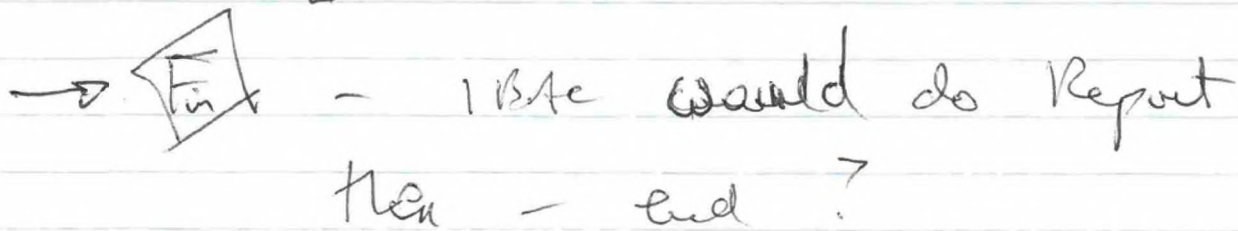 → Fin - IBAC would do Report
then - end ?